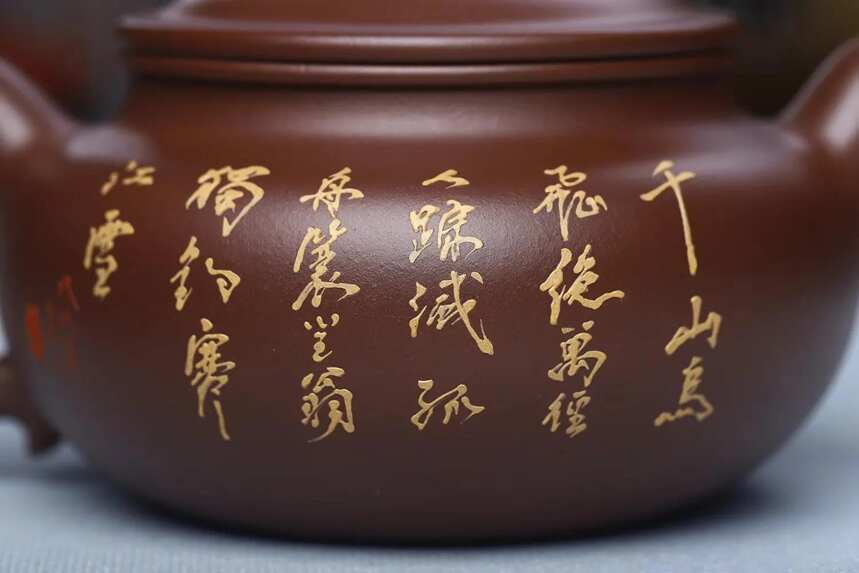 千山鳥
飛絕萬徑
人蹤滅孤
舟簑笠翁
獨釣寒
江雪